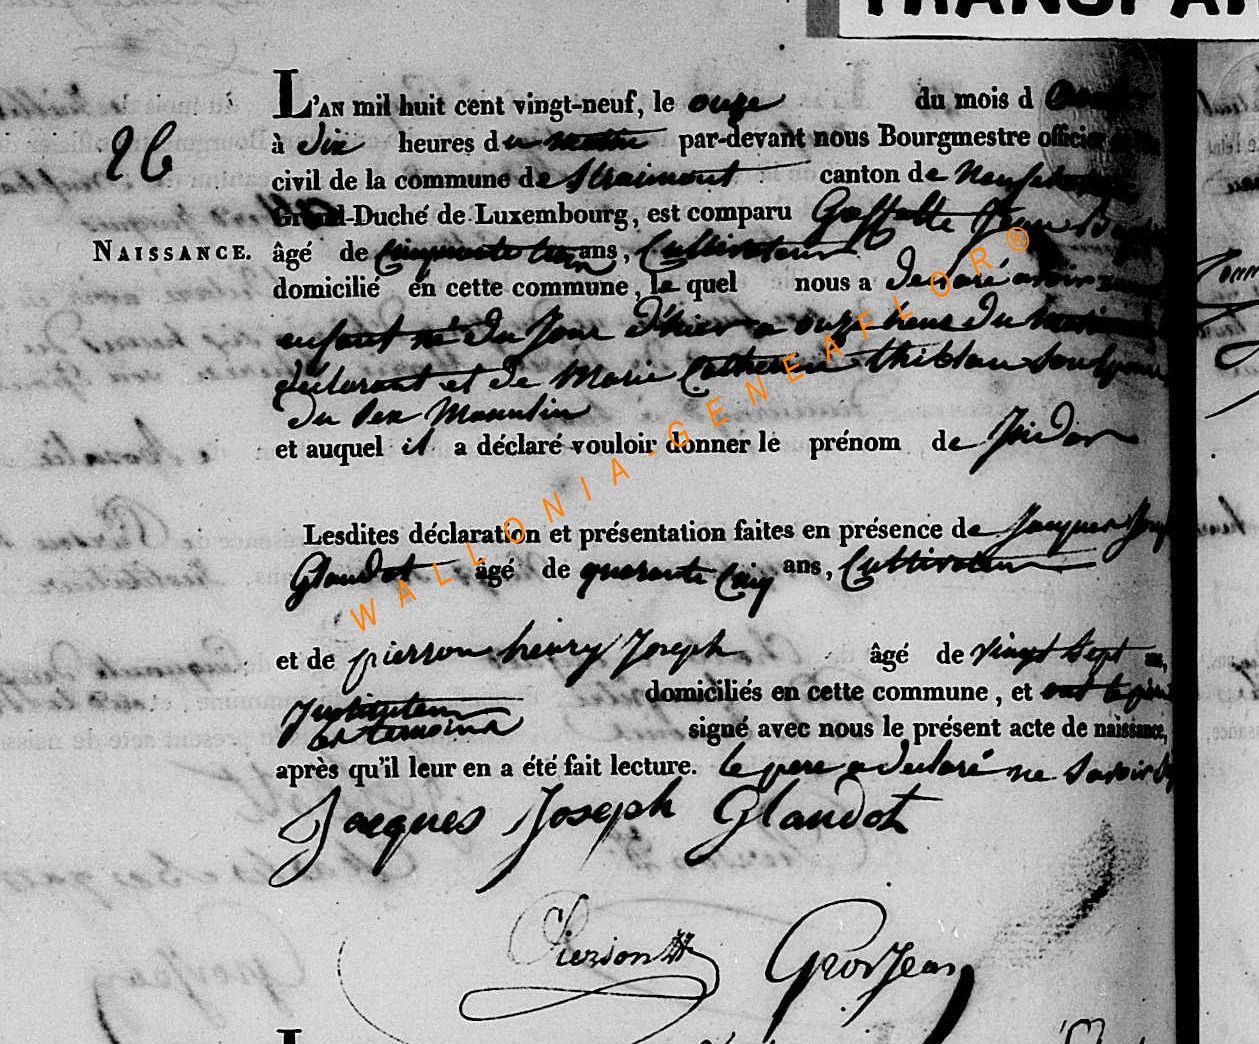 TRANSPAR
L'AN mil huit cent vingt-neuf, le onze du mois d
26
à dix heures du matin par-devant nous Bourgmestre officier
civil de la commune de Straimont canton de Neufchateau
Grand-Duché de Luxembourg, est comparu Goffette Jean
NAISSANCE.
âgé de Cinquante ans, Cultivateur
domicilié en cette commune, le quel nous a declaré avoir
enfant né du jour d'hier a onze heure du matin
déclarant et de Marie Catherine thiblau son
du sex Masculin
et auquel il a déclaré vouloir donner le prénom de Isidor
Lesdites déclaration et présentation faites en présence de Jacques
Glaudot âgé de quarante Cinq ans, Cultivateur
et de pierson henry Joseph âgé de vingt sept
Instituteur domiciliés en cette commune, et
les temoins signé avec nous le présent acte de naissance,
après qu'il leur en a été fait lecture. le pere a declaré ne savoir
Jacques Joseph Glaudot
Pierson
GrosJean
WALLONIA-GENEAFLOR®